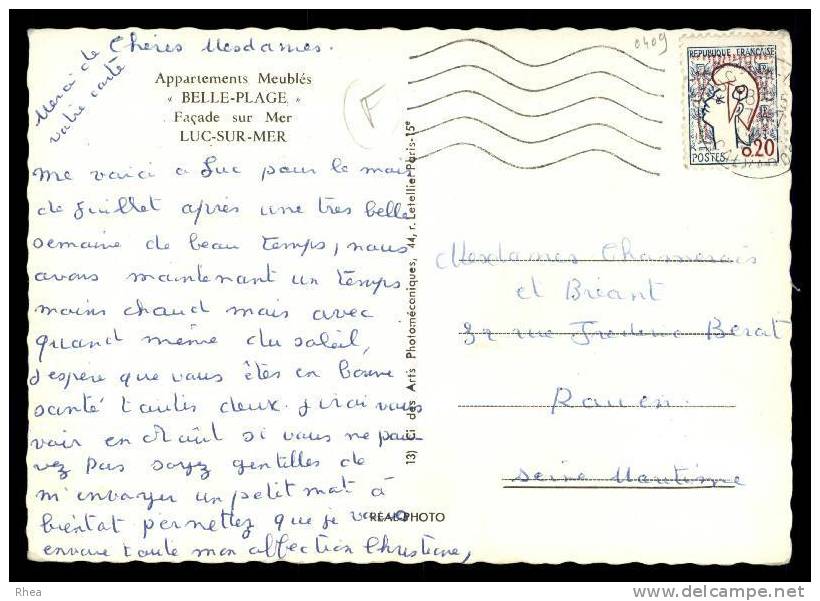 Merci de
votre carte
Chères Mesdames.
Appartements Meublés
« BELLE-PLAGE »
Façade sur Mer
LUC-SUR-MER
me voici a Luc pour le mois
de Juillet après une tres belle
semaine de beau temps, nous
avons maintenant un temps
moins chaud mais avec
quand même du soleil,
J'espère que vous êtes en bonne
santé toutes deux. J'irai vous
voir en Août si vous ne pou-
vez pas soyez gentilles de
m'envoyer un petit mot à
bientôt permettez que je vous
envoie toute mon affection Christiane,
REAL-PHOTO
13) Ci des Arts Photomécaniques, 44, r. Letellier Paris-15e
F
0409
REPUBLIQUE FRANÇAISE
0.20
POSTES
Mesdames
et Bréant
32 rue Frederic Berat
Rouen
Seine Maritime
Rhea
www.delcampe.net